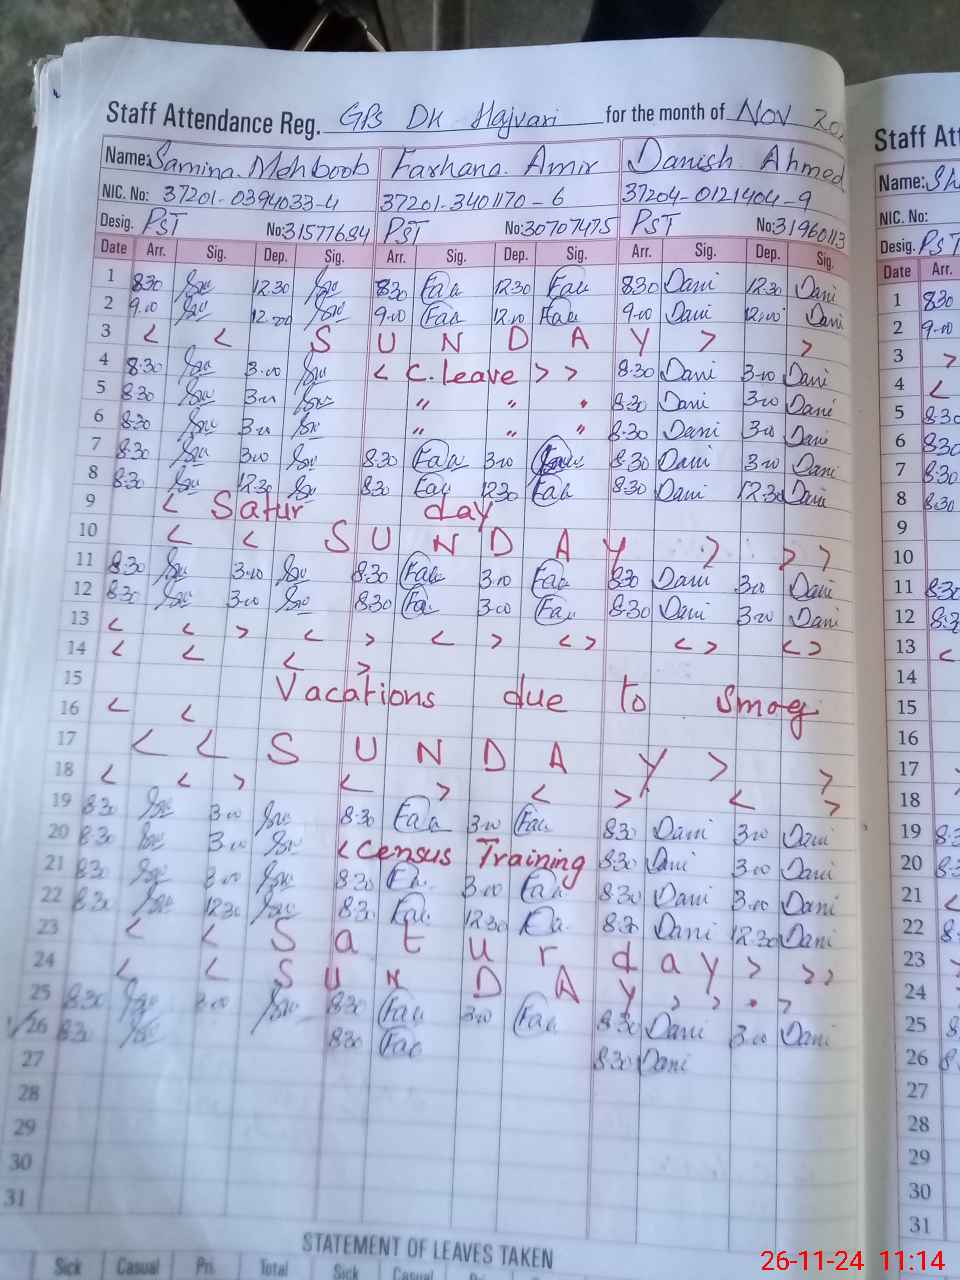 Staff Attendance Reg. GPS DK Hajvari for the month of Nov 20
Name: Samina Mehboob Farhana Amir Danish Ahmed
NIC. No: 37201-0394033-4 37201-3401170-6 37204-0121404-9
Desig. PST No: 31577684 PST No: 30707475 PST No: 31960113
Date Arr. Sig. Dep. Sig. Arr. Sig. Dep. Sig. Arr. Sig. Dep. Sig.
1 8.30 12.30 8.30 Faa 12.30 Faa 8.30 Dani 12.30 Dani
2 9.00 12.00 9.00 Faa 12.00 Faa 9.00 Dani 12.00 Dani
3 < < SUNDAY > >
4 8.30 3.00 < C.leave > > 8.30 Dani 3.00 Dani
5 8.30 3.00 " " 8.30 Dani 3.00 Dani
6 8.30 3.00 " " " 8.30 Dani 3.00 Dani
7 8.30 3.00 8.30 Faa 3.00 8.30 Dani 3.00 Dani
8 8.30 12.30 8.30 Faa 12.30 Faa 8.30 Dani 12.30 Dani
9 < Saturday
10 < < SUNDAY > > >
11 8.30 3.00 8.30 Faa 3.00 Faa 8.30 Dani 3.00 Dani
12 8.30 3.00 8.30 Fa 3.00 Faa 8.30 Dani 3.00 Dani
13 < < > < > < > < > < > < >
14 < < < >
15 Vacations due to Smog
16 < <
17 < < SUNDAY > >
18 < < > < > < > < >
19 8.30 3.00 8.30 Faa 3.00 Faa 8.30 Dani 3.00 Dani
20 8.30 3.00 < Census Training 8.30 Dani 3.00 Dani
21 8.30 3.00 8.30 3.00 Faa 8.30 Dani 3.00 Dani
22 8.30 12.30 8.30 Faa 12.30 8.30 Dani 12.30 Dani
23 < < Saturday > > >
24 < < SUNDAY > > >
25 8.30 3.00 8.30 Faa 3.00 Faa 8.30 Dani 3.00 Dani
26 8.30 8.30 Faa 8.30 Dani
27
28
29
30
31
STATEMENT OF LEAVES TAKEN
Sick Casual Pri. Total Sick Casual
Staff Att
Name: Sh
NIC. No:
Desig. PST
Date Arr.
1 8.30
2 9.00
3 >
4 <
5 8.30
6 8.30
7 8.30
8 8.30
9
10
11 8.30
12 8.3
13 <
14
15
16
17
18
19 8.3
20 8.3
21 <
22 8.
23
24
25 8.3
26 8
27
28
29
30
31
26-11-24 11:14